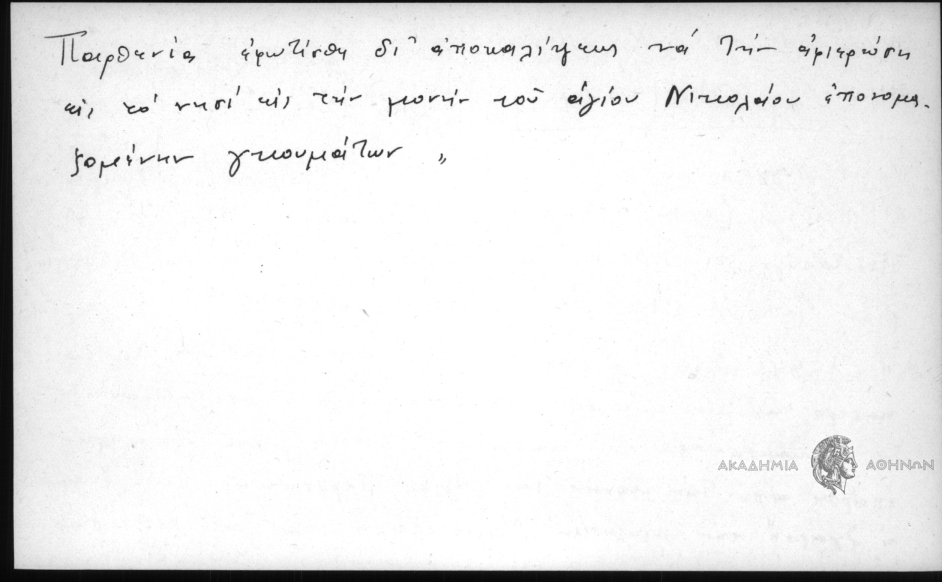 Παρθενία ἐφωτίσθη δι' ἀποκαλύψεως νά τήν ἀφιερώση
εἰς τό νησί εἰς τήν μονήν τοῦ ἁγίου Νικολάου ἐπονομα-
ζομένην γκιουμάτων „
ΑΚΑΔΗΜΙΑ ΑΘΗΝΩΝ